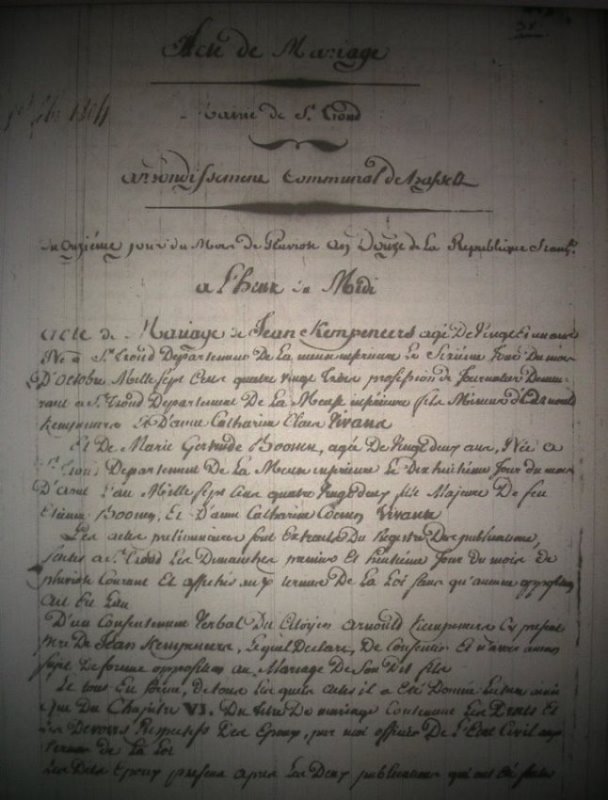 Acte de Mariage
Mairie de St. Trond
arrondissement Communal de hasselt
du onzième jour du Mois de Pluviose an Douze de la Republique Franç.
a l'heure de Midi
acte de Mariage de Jean Kempeneers agé De vingt un ans
Né a St. Trond Departement De La meuse inferieure Le Sixième Jour Du mois
D'octobre Mille sept Cens quatre vingt trois profession de Journalier Demeu-
rant a St. Trond Departement De La Meuse inferieure fils Mineur d'arnould
Kempeneers Et D'anne Catharine Claes Vivans
Et De Marie Gertrude Boonen, agée De vingt deux ans, Née a
St. Trond Departement De La Meuse inferieure Le Dix huitième Jour du mois
D'avril L'an Mille sept Cens quatre vingt deux fille Majeure De feu
Etienne Boonen, Et D'anne Catharine Coenen Vivante
Les actes preliminaires sont Extraits Du Registre Des publications,
faites a St. Trond Les Dimanches premier Et huitième Jour du mois de
pluviose Courant Et affichés aux termes De La Loi sans qu'aucune opposition
ait Eu Lieu
D'un Consentement Verbal Du Citoyen arnould Kempeneers Cy present
pere De Jean Kempeneers, Lequel Declare, De Consentir Et n'avoir aucun
sujet De former opposition au Mariage De Son Dit fils
Le tout En forme, de tous Les quels actes il a Eté Donné Lecture ainsi
que Du Chapitre VI. Du titre Du mariage Contenant Les Droits et
Les Devoirs Respectifs Des Epoux, par moi officier De L'Etat Civil aux
termes de La Loi
Les Dits Epoux presens après Les Deux publications qui ont été faites